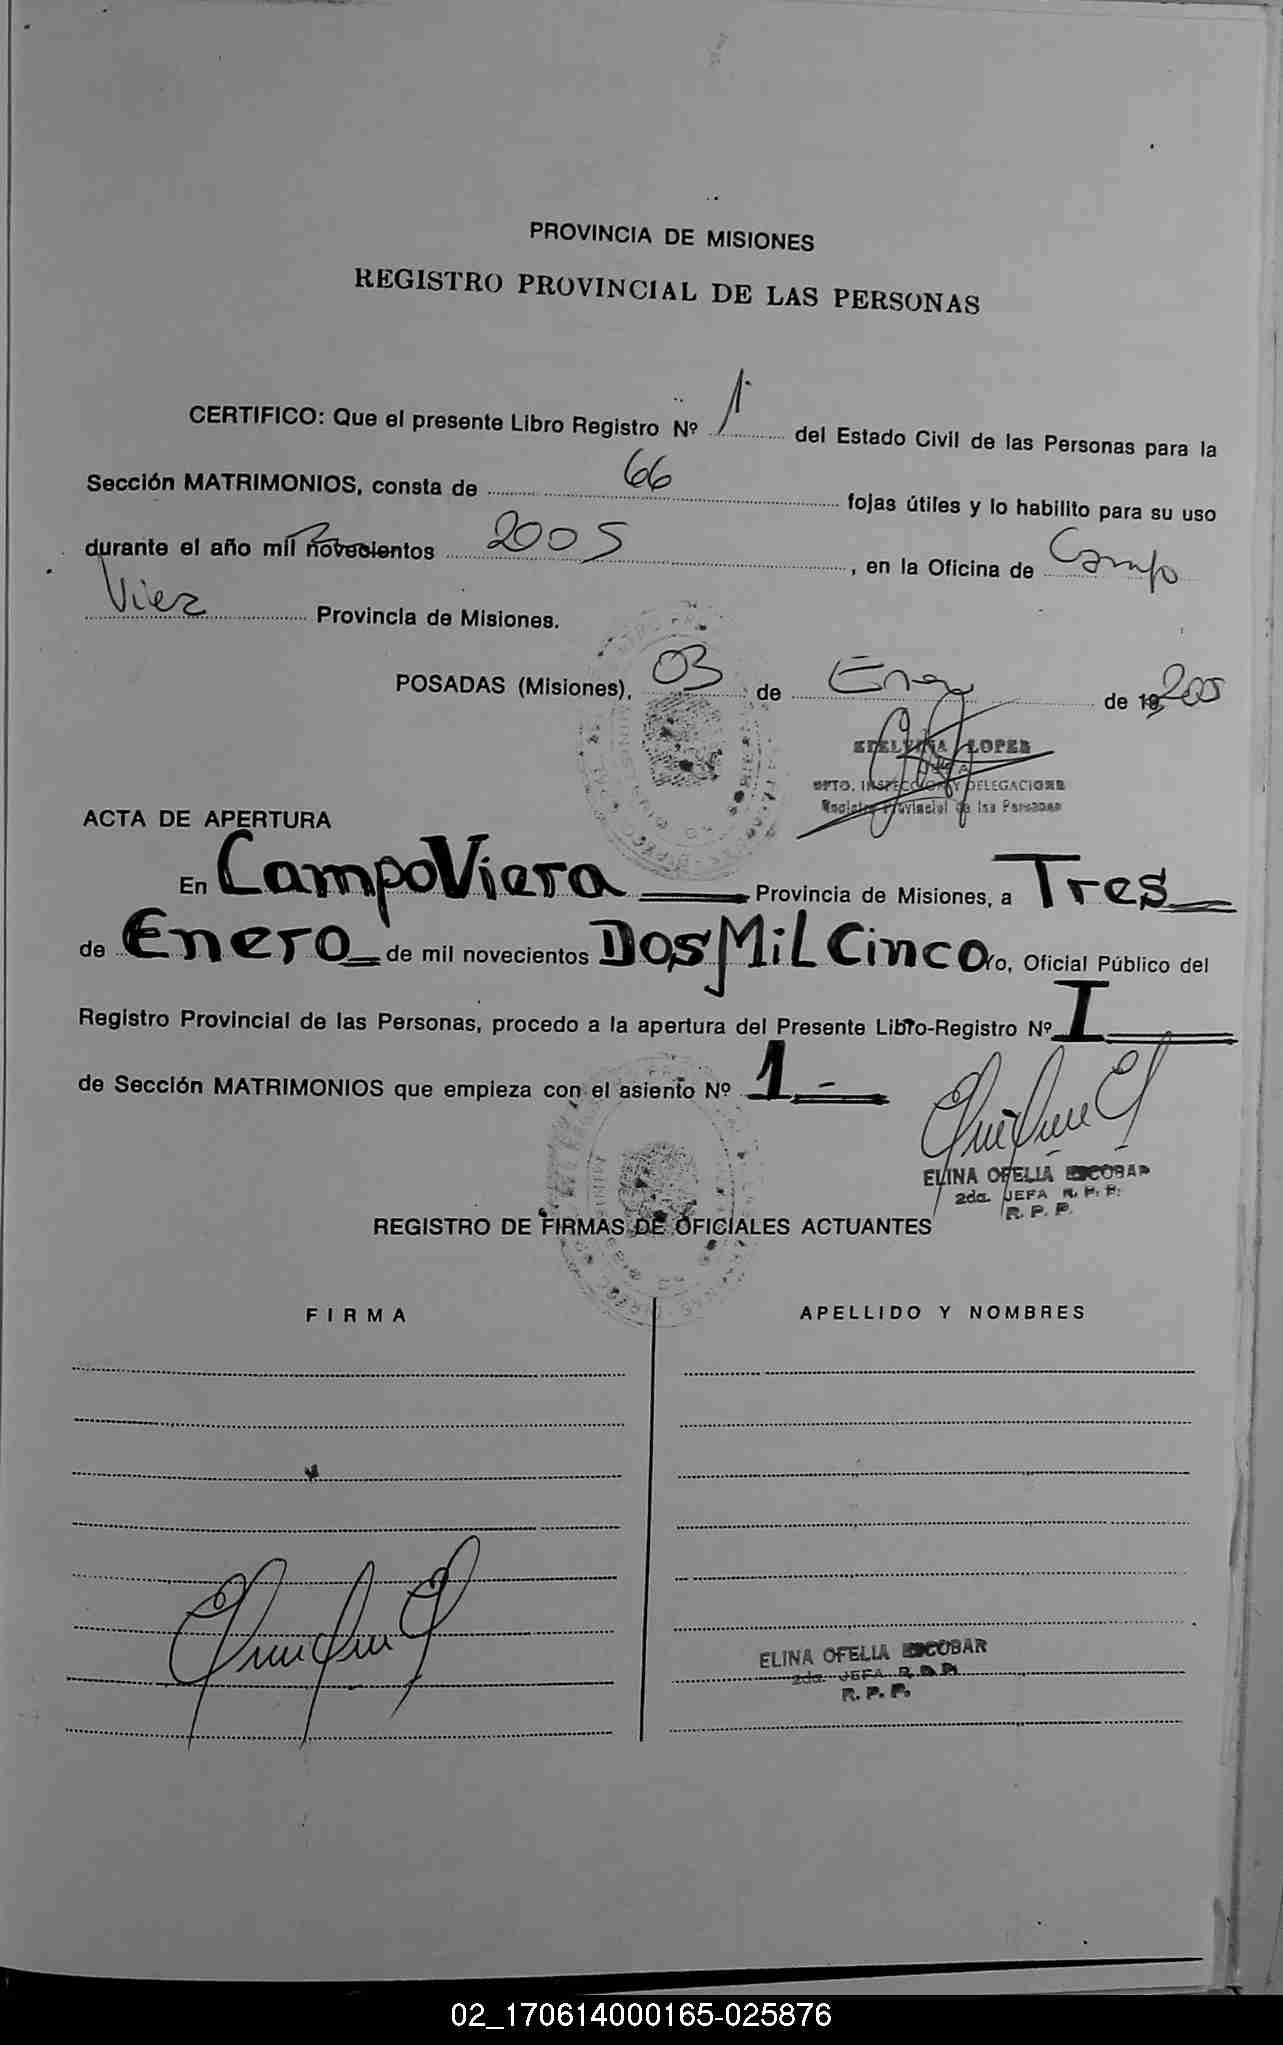 PROVINCIA DE MISIONES
REGISTRO PROVINCIAL DE LAS PERSONAS
CERTIFICO: Que el presente Libro Registro Nº 1 del Estado Civil de las Personas para la
Sección MATRIMONIOS, consta de 66 fojas útiles y lo habilito para su uso
durante el año mil novecientos 2005, en la Oficina de Campo
Viera Provincia de Misiones.
POSADAS (Misiones), 03 de Enero de 19 2005
LOPEZ
DPTO. INSPECCION Y DELEGACIONES
Registro Provincial de las Personas
ACTA DE APERTURA
En Campo Viera Provincia de Misiones, a Tres
de Enero de mil novecientos Dos Mil Cinco yo, Oficial Público del
Registro Provincial de las Personas, procedo a la apertura del Presente Libro-Registro Nº I
de Sección MATRIMONIOS que empieza con el asiento Nº 1 -
ELINA OFELIA ESCOBAR
2da. JEFA R. P. P.
R. P. P.
REGISTRO DE FIRMAS DE OFICIALES ACTUANTES
FIRMA APELLIDO Y NOMBRES
ELINA OFELIA ESCOBAR
2da. JEFA R. P. P.
R. P. P.
02_170614000165-025876